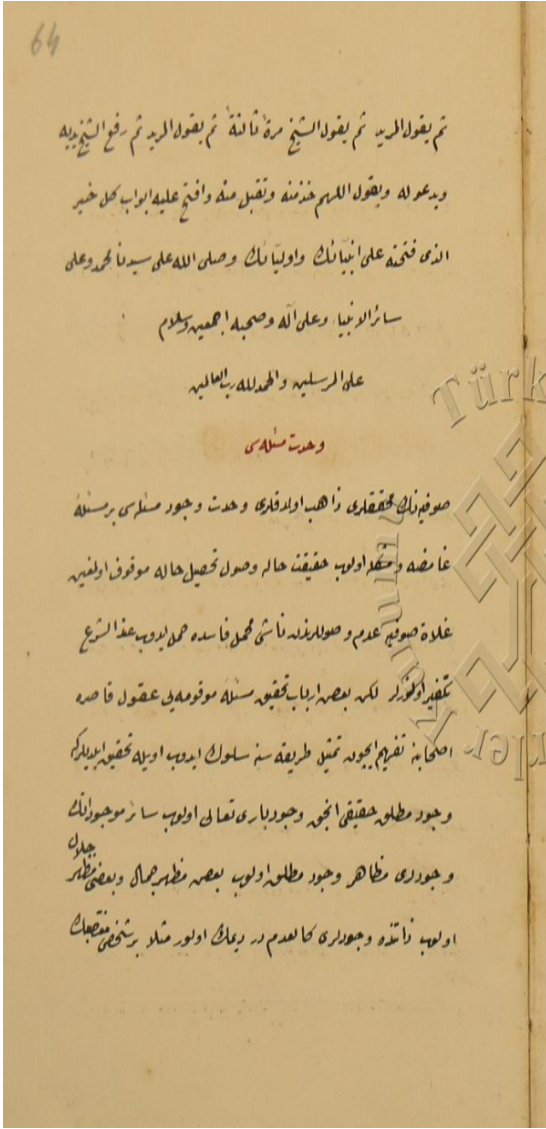 64
ثم يقول المريد ثم يقول الشيخ مرة ثالثة ثم يقول المريد ثم رفع الشيخ يديه
ويدعو له ويقول اللهم خذ منه وتقبل منه وافتح عليه ابواب كل خير
الذى فتحته على انبيآئك واوليآئك وصلى الله على سيدنا محمد وعلى
سائر الانبيا وعلى آله وصحبه اجمعين وسلام
على المرسلين والحمد لله رب العالمين
وحدت مسئله سى
صوفيه نك محققلرى ذاهب اولدقلرى وحدت وجود مسئله سى بر مسئلهٔ
غامضه و مشكله اولوب حقيقت حاله وصول تحصيل حاله موقوف اولمغين
غلاة صوفيه عدم وصوللرندن ناشى محمل فاسده حمل ايدوب عند الشرع
تكفير اولنورلر لكن بعض ارباب تحقيق مسئله مرقومه يى عقول قاصره
اصحابنه تفهيم ايچون تمثيل طريقه سنه سلوك ايدوب اويله تحقيق ايلديلركه
وجود مطلق حقيقى انجق وجود بارى تعالى اولوب سائر موجوداتك
وجودلرى مظاهر وجود مطلق اولوب بعض مظهر جمال وبعضى مظهر جلال
اولوب ذاتنده وجودلرى كالعدم در ديمك اولور مثلا بر شخص
Türk